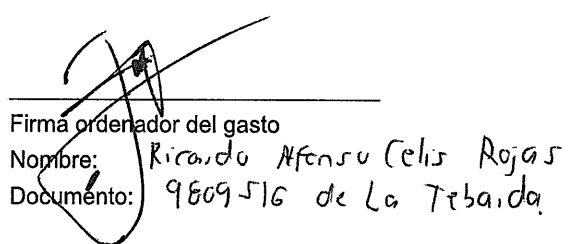 Firma ordenador del gasto
Nombre: Ricardo Alfonso Celis Rojas
Documento: 9809516 de La Tebaida